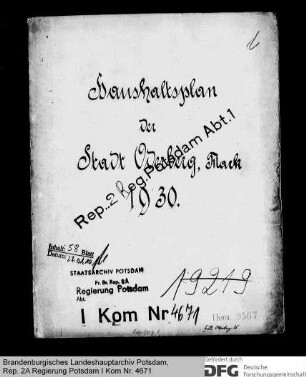 Haushaltsplan
der
Stadt Oderberg, Mark
1930.
Rep. 2 Reg. Potsdam Abt. 1
Inhalt: 58 Blatt
STAATSARCHIV POTSDAM
Pr. Br. Rep. 2A
Regierung Potsdam
Abt.
I Kom Nr 4671
19219
I Kom 0567
Brandenburgisches Landeshauptarchiv Potsdam,
Rep. 2A Regierung Potsdam I Kom Nr. 4671
Gefördert durch
DFG Deutsche
Forschungsgemeinschaft